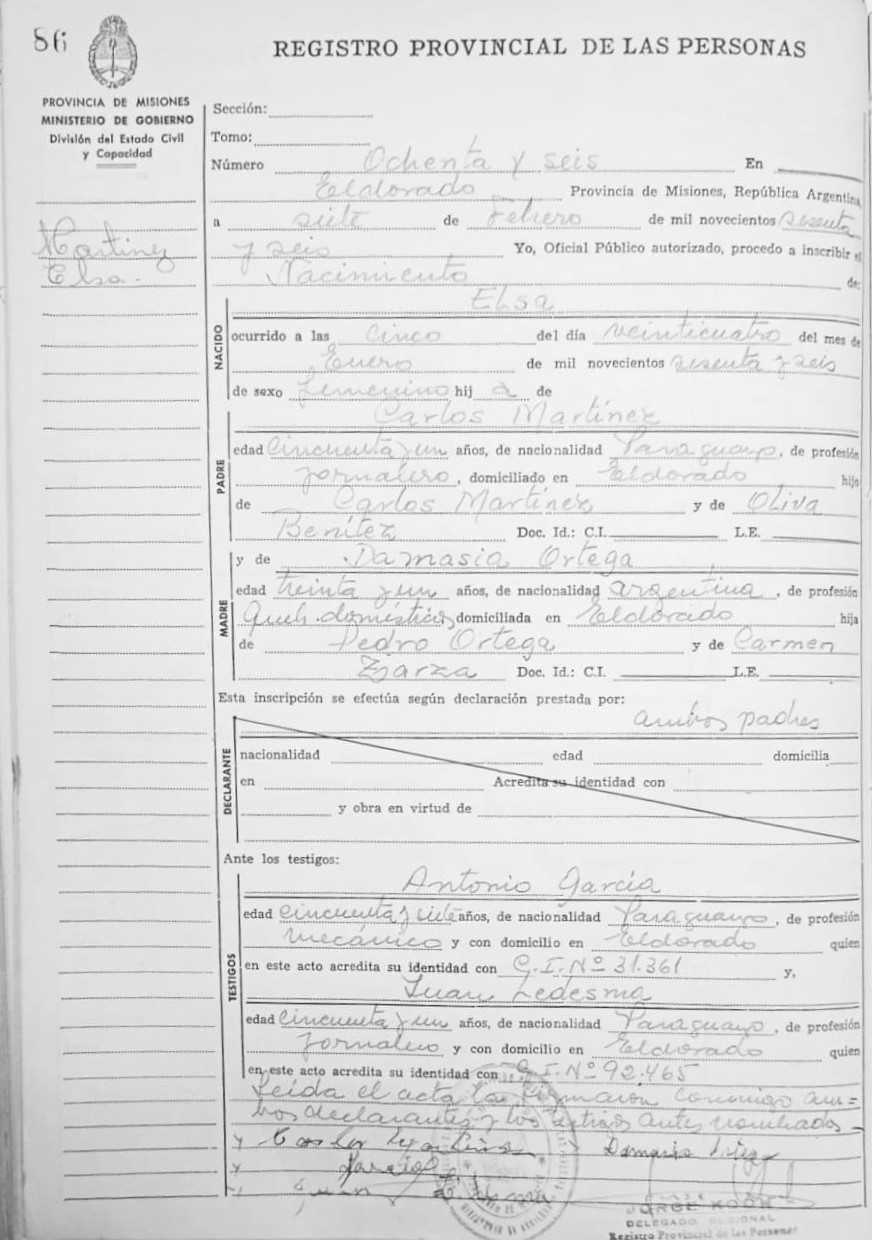 86
REGISTRO PROVINCIAL DE LAS PERSONAS
PROVINCIA DE MISIONES
MINISTERIO DE GOBIERNO
División del Estado Civil
y Capacidad
Martinez
Elsa.-
Sección:
Tomo:
Número Ochenta y seis En
Eldorado Provincia de Misiones, República Argentina
a siete de Febrero de mil novecientos sesenta
y seis Yo, Oficial Público autorizado, procedo a inscribir el
Nacimiento de:
NACIDO
Elsa
ocurrido a las cinco del día veinticuatro del mes de
Enero de mil novecientos sesenta y seis
de sexo femenino hij a de
PADRE
Carlos Martínez
edad cincuenta y un años, de nacionalidad Paraguayo, de profesión
Jornalero, domiciliado en Eldorado hijo
de Carlos Martínez y de Oliva
Benítez Doc. Id.: C.I. L.E.
MADRE
y de Damasia Ortega
edad treinta y un años, de nacionalidad argentina, de profesión
Queh. domésticos, domiciliada en Eldorado hija
de Pedro Ortega y de Carmen
Doc. Id.: C.I. L.E.
Esta inscripción se efectúa según declaración prestada por:
ambos padres
DECLARANTE
nacionalidad edad domicilia
en Acredita su identidad con
y obra en virtud de
Ante los testigos:
TESTIGOS
Antonio García
edad cincuenta y siete años, de nacionalidad Paraguayo, de profesión
mecánico y con domicilio en Eldorado quien
en este acto acredita su identidad con C.I. Nº 31.361 y,
Juan Ledesma
edad cincuenta y un años, de nacionalidad Paraguayo, de profesión
Jornalero y con domicilio en Eldorado quien
en este acto acredita su identidad con C.I. Nº 92.465
Leída el acta la firmaron conmigo am=
bos declarantes y los testigos antes nombrados-
Damasia Ortega
JORGE KOCH
DELEGADO REGIONAL
Registro Provincial de las Personas